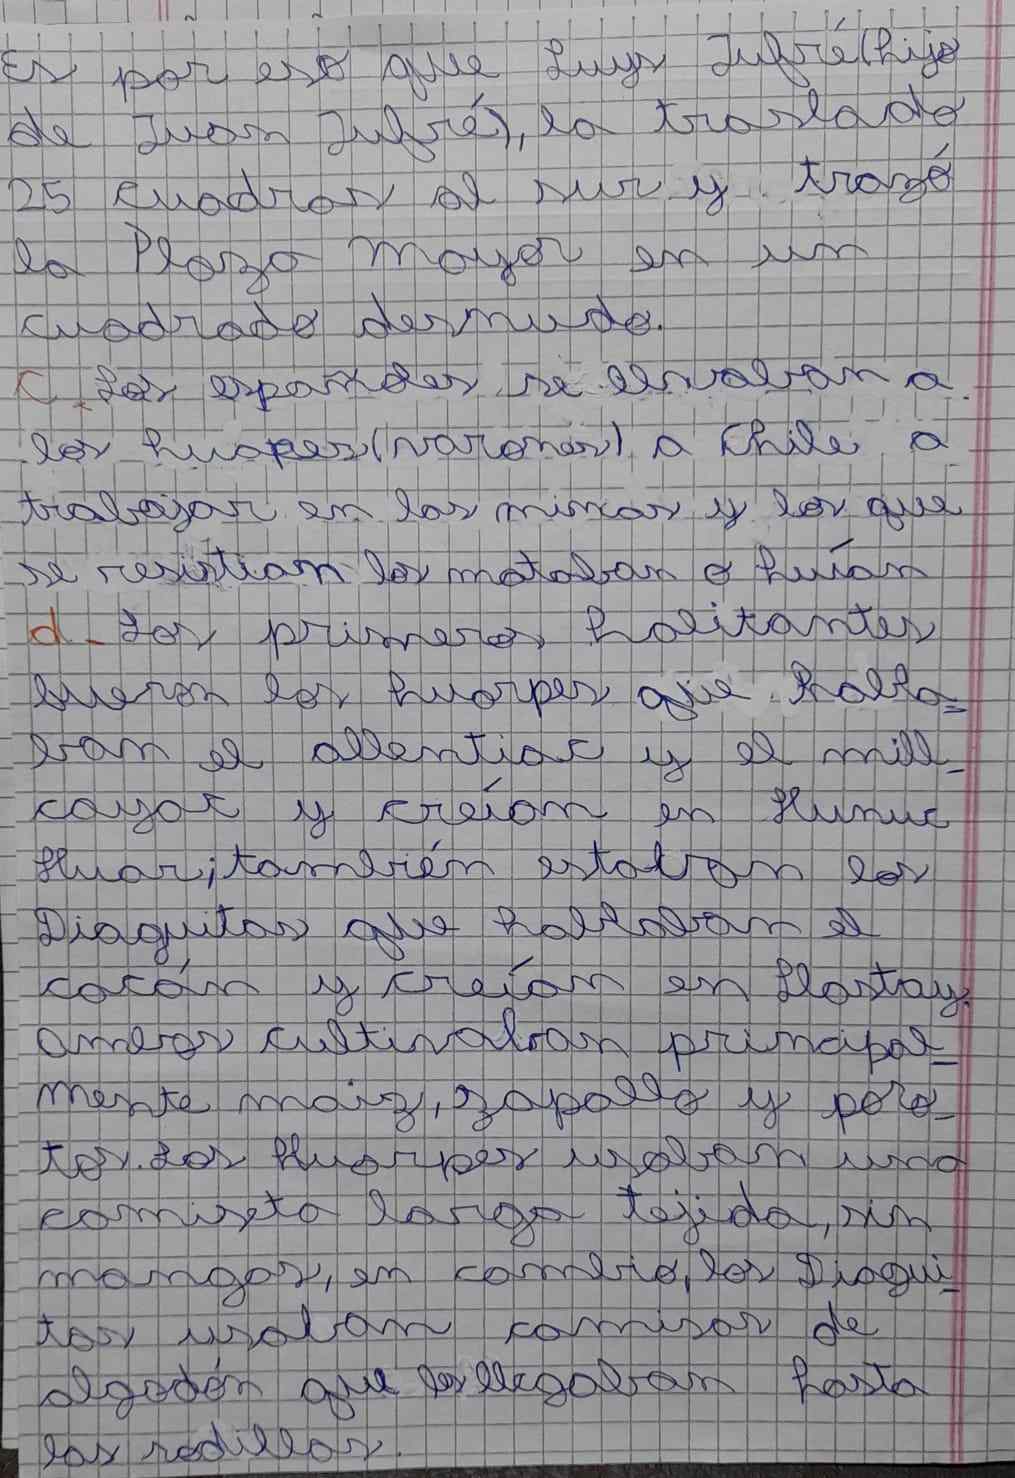 Es por eso que Luys Jufré(hijo
de Juan Jufré), la trasladó
25 cuadras al sur y trazó
la Plaza Mayor en un
cuadrado desnudo.
C. Los españoles se llevaban a
los huapes(varones) a Chile a
trabajar en las minas y los que
se resistian los mataban o huían
d- Los primeros habitantes
fueron los huarpes que habla=
ban el allentiac y el mill-
cayac y creían en Hunuc
Huar; también estaban los
Diaguitas que hablaban el
cacán y creían en Llastay.
ambos cultivaban principal-
mente maiz, zapallo y poro-
tos. Los Huarpes usaban una
camiseta larga tejida, sin
mangas, en cambio, los Diagui-
tas usaban camisas de
algodón que les llegaban hasta
las rodillas.